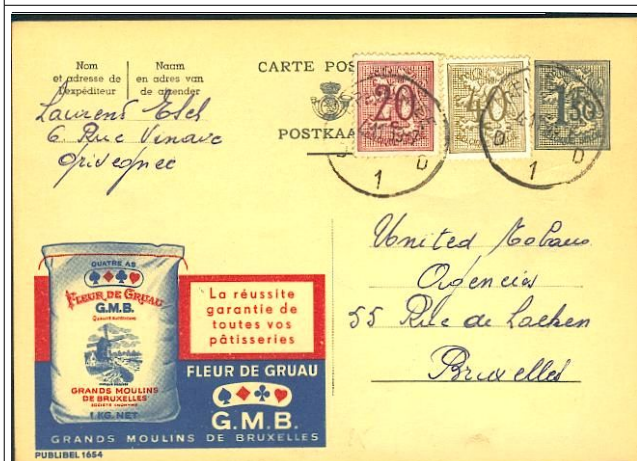 Nom
et adresse de
l'expéditeur
Naam
en adres van
de afzender
CARTE POS
POSTKAA
20
40
1F50
D 1 D
D 1 D
Laurens
6. Rue Vinave
Grivegnée
United
Agencies
55 Rue de Laeken
Bruxelles
QUATRE AS
FLEUR DE GRUAU
G.M.B.
GRANDS MOULINS
DE BRUXELLES
SOCIÉTÉ ANONYME
1 KG. NET
La réussite
garantie de
toutes vos
pâtisseries
FLEUR DE GRUAU
G.M.B.
GRANDS MOULINS DE BRUXELLES
PUBLIBEL 1654